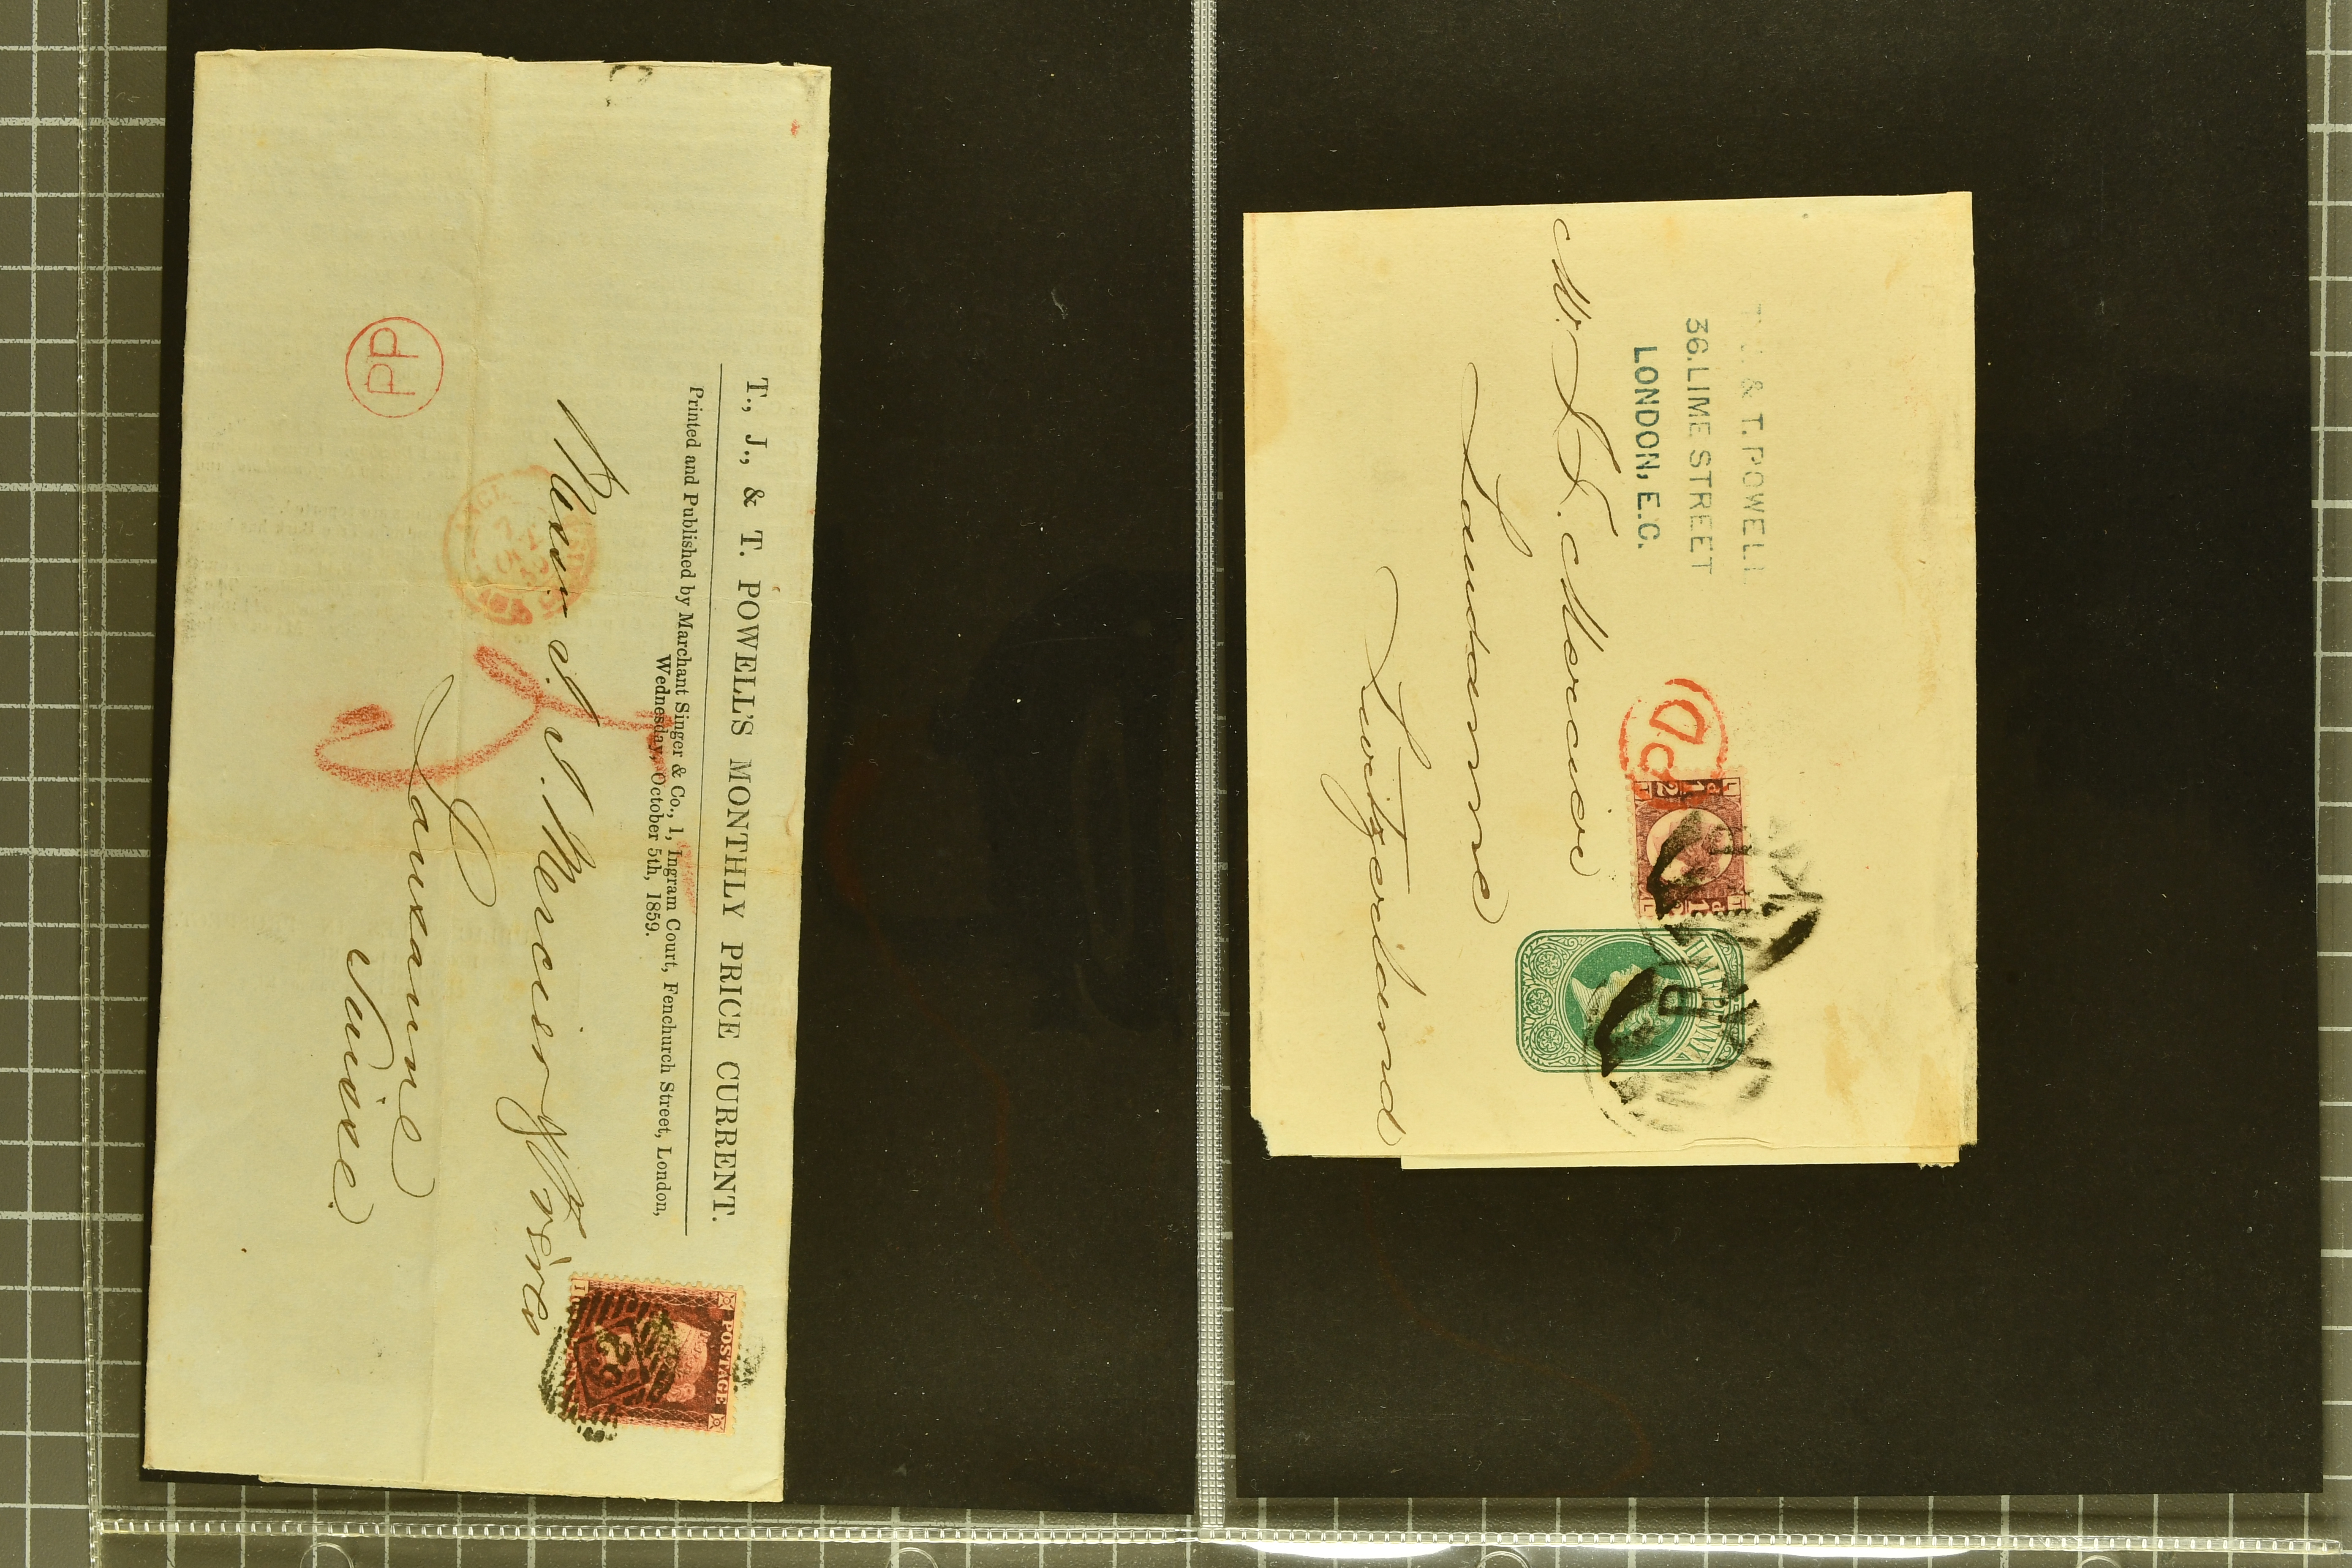 T., J., & T. POWELL'S MONTHLY PRICE CURRENT.
Printed and Published by Marchant Singer & Co., 1, Ingram Court, Fenchurch Street, London,
Wednesday, October 5th, 1859.
Mercier
Lausanne
Suisse.
PP
POSTAGE
& T. POWELL
36. LIME STREET
LONDON, E.C.
PD
HALFPENNY
Mercier
Lausanne
Switzerland